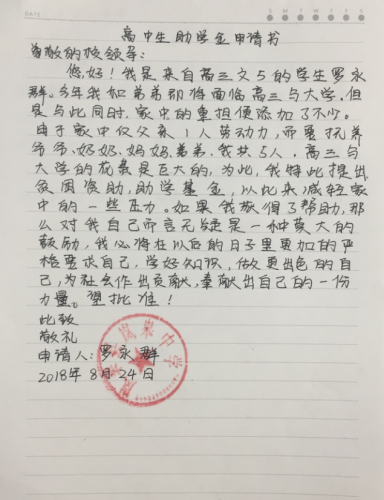 DATE
S M T W T F S
高中生助学金申请书
尊敬的校领导：
您好！我是来自高三文5的学生罗永
群。今年我如弟弟即将面临高三与大学，但
是与此同时，家中的重担便添加了不少。
由于家中仅父亲1人劳动力，而要抚养
爷爷、奶奶、妈妈、弟弟、我共5人，高三与
大学的花费是巨大的，为此，我特此提出
贫困资助，助学基金，以此来减轻家
中的一些压力。如果我获得了帮助，那
么对我自己而言无疑是一种莫大的
鼓励，我必将在以后的日子里更加的严
格要求自己，学好知识，做更出色的自
己，为社会作出贡献，奉献出自己的一份
力量。望批准！
此致
敬礼
申请人：罗永群
2018年8月24日
中学